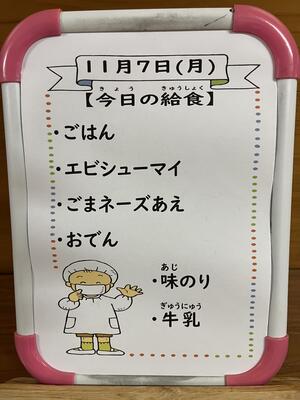 11月7日(月)
【今日の給食】
きょう きゅうしょく
・ごはん
・エビシューマイ
・ごまネーズあえ
・おでん
あじ
・味のり
ぎゅうにゅう
・牛乳